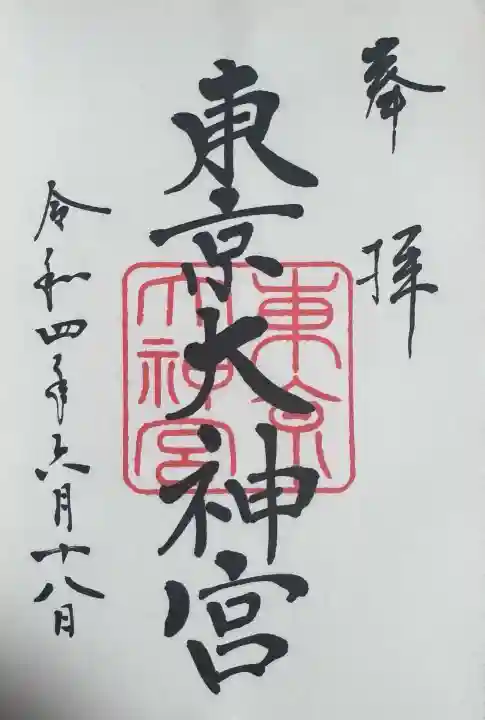 奉拝
東京大神宮
東京
大神宮
令和四年六月十八日